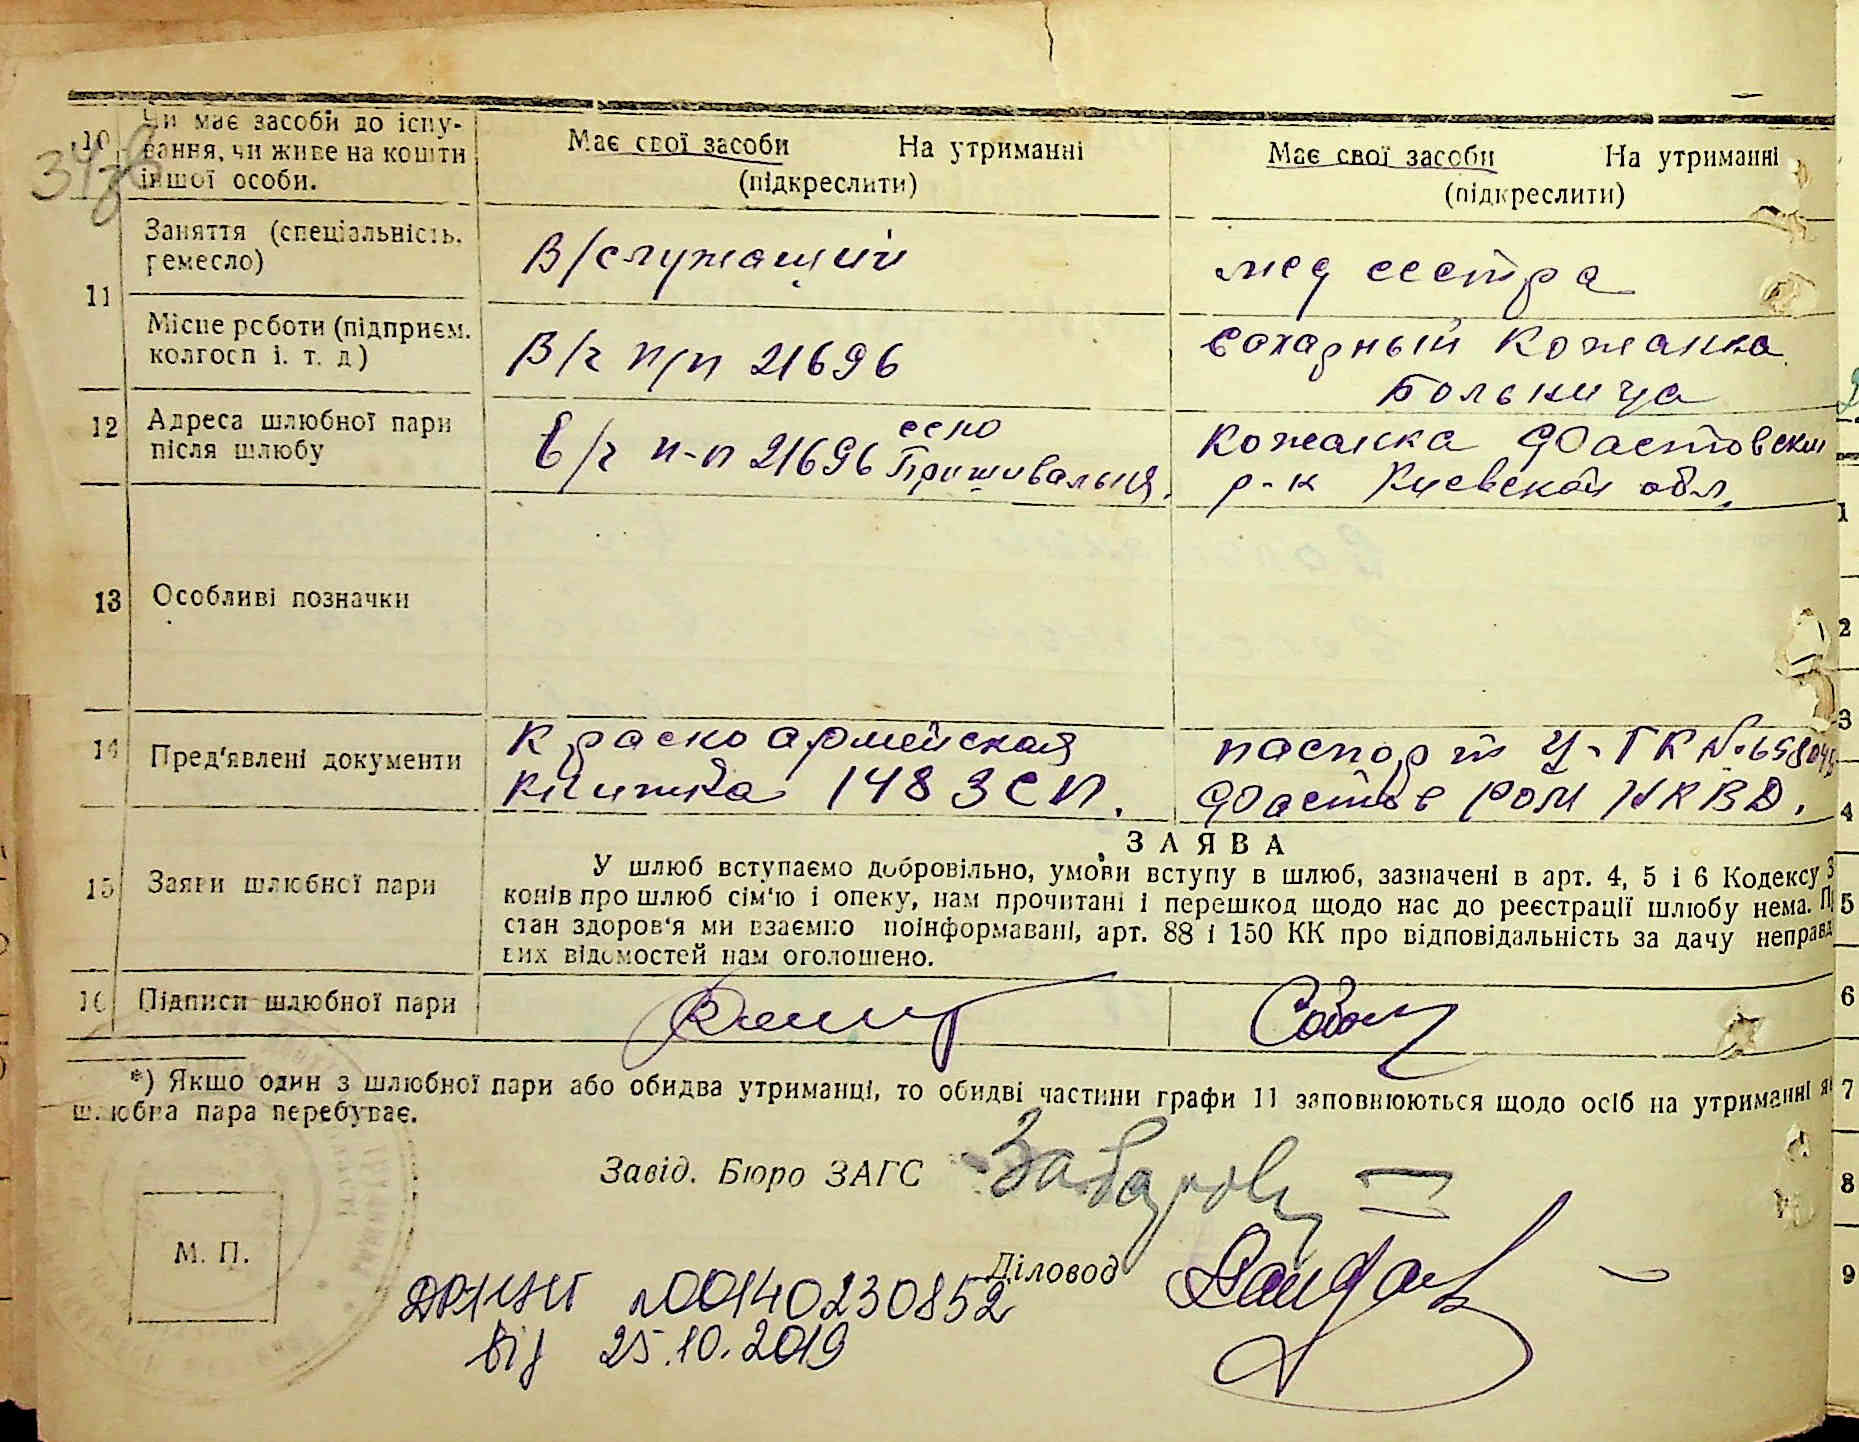 10 Чи має засоби до існу-
вання, чи живе на кошти
іншої особи.
Має свої засоби На утриманні
(підкреслити)
Має свої засоби На утриманні
(підкреслити)
11 Заняття (спеціальність,
ремесло)
В/служащий
мед сестра
Місце роботи (підприєм.
колгосп і. т. д)
В/ч п/п 21696
сахарный Кожанка
Больница
12 Адреса шлюбної пари
після шлюбу
в/ч п-п 21696 село
Пришивальня.
Кожанка Фастовский
р-к Киевской обл.
13 Особливі позначки
14 Пред'явлені документи
Красноармейская
книжка 148 ЗСП.
паспорт У-ГК №
Фастов РОМ НКВД.
15 Заяви шлюбної пари
ЗАЯВА
У шлюб вступаємо добровільно, умови вступу в шлюб, зазначені в арт. 4, 5 і 6 Кодексу З
конів про шлюб сім'ю і опеку, нам прочитані і перешкод щодо нас до реєстрації шлюбу нема. П
стан здоров'я ми взаємно поінформавані, арт. 88 і 150 КК про відповідальність за дачу неправд
вих відомостей нам оголошено.
16 Підписи шлюбної пари
*) Якщо один з шлюбної пари або обидва утриманці, то обидві частини графи 11 заповнюються щодо осіб на утриманні як
шлюбна пара перебуває.
Завід. Бюро ЗАГС
М. П.
Діловод
№00140230852
від 25.10.2019
1
2
3
4
5
6
7
8
9